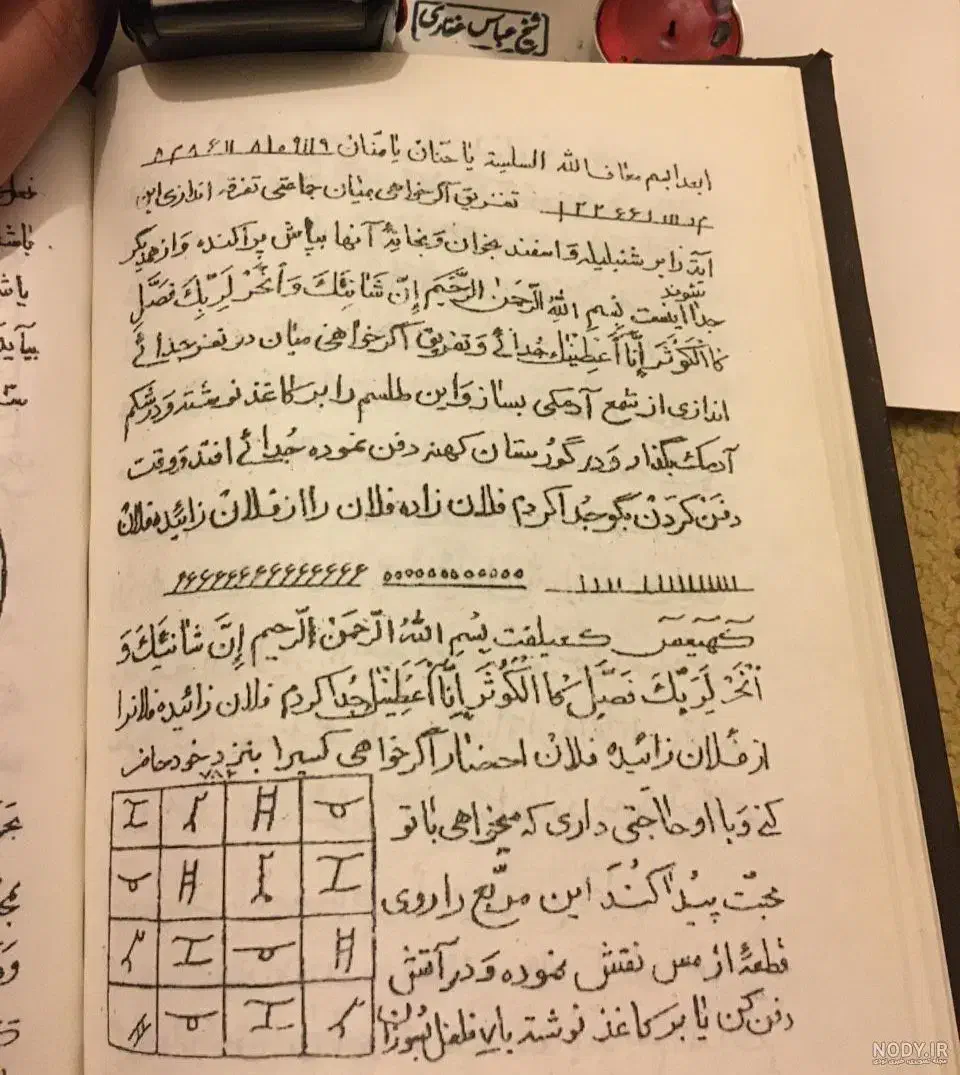 شیخ عباس غفاری
ابعد ابم معاف الله السلسیة یا حنان یا منان
تفریق اگر خواهی میان جماعتی تفرقه اندازی این
آیه را بر شنبلیله و اسفند بخوان و بخانهٔ آنها بپاش پراکنده و از همدیگر
جدا شوند اینست بِسْمِ اللهِ الرَّحْمٰنِ الرَّحِیمِ إِنَّ شَانِئَكَ وَانْحَرْ لِرَبِّكَ فَصَلِّ
كَمَا الْكَوْثَرَ إِنَّا أَعْطَيْنَكَ جُدائے وتفریق اگر خواهی میان دو نفر جدائے
اندازی از شمع آدمکی بساز و این طلسم را بر کاغذ نوشته و در شکم
آدمک بگذار و در گورستان کهنه دفن نموده جُدائے افتد و وقت
دفن کردن بگو جُدا کردم فلان زاده فلان را از فلان زائیده فلان
کهیعص کعیلفت بِسْمِ اللهِ الرَّحْمٰنِ الرَّحیمِ إِنَّ شَانِئَكَ وَ
انْحَرْ لِرَبِّكَ فَصَلِّ كَمَا الْكَوْثَرَ إِنَّا أَعْطَيْنَكَ جُدا کردم فلان زائیده فلانرا
از فلان زائیده فلان احضار اگر خواهی کسیرا بنزد خود حاضر
۷۸۶
کنے و با او حاجتی داری که میخواهی با تو
محبّت پیدا کُند این مربّع را روی
قطعهٔ از مس نقش نموده و در آتش
دفن کن یا بر کاغذ نوشته با فلفل بسوزان
NODY.IR